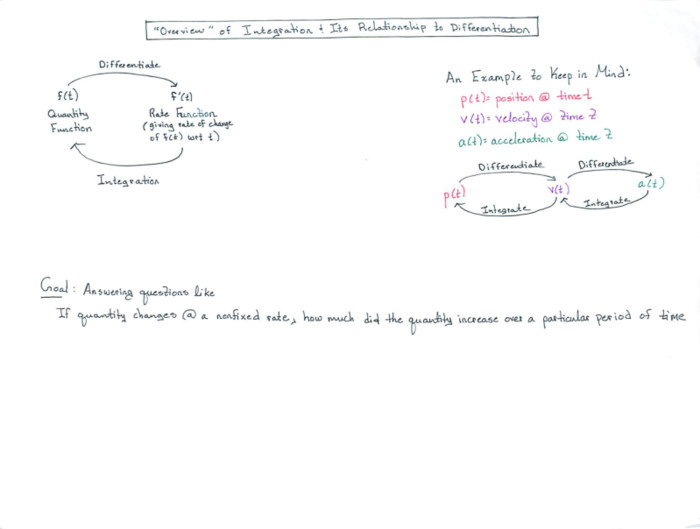 "Overview" of Integration & Its Relationship to Differentiation
Differentiate
f(t)
f'(t)
Quantity
Function
Rate Function
(giving rate of change
of f(t) wrt t)
Integration
An Example to Keep in Mind:
p(t)= position @ time t
v(t)= velocity @ time t
a(t)= acceleration @ time t
Differentiate
Differentiate
p(t)
v(t)
a(t)
Integrate
Integrate
Goal: Answering questions like
If quantity changes @ a nonfixed rate, how much did the quantity increase over a particular period of time